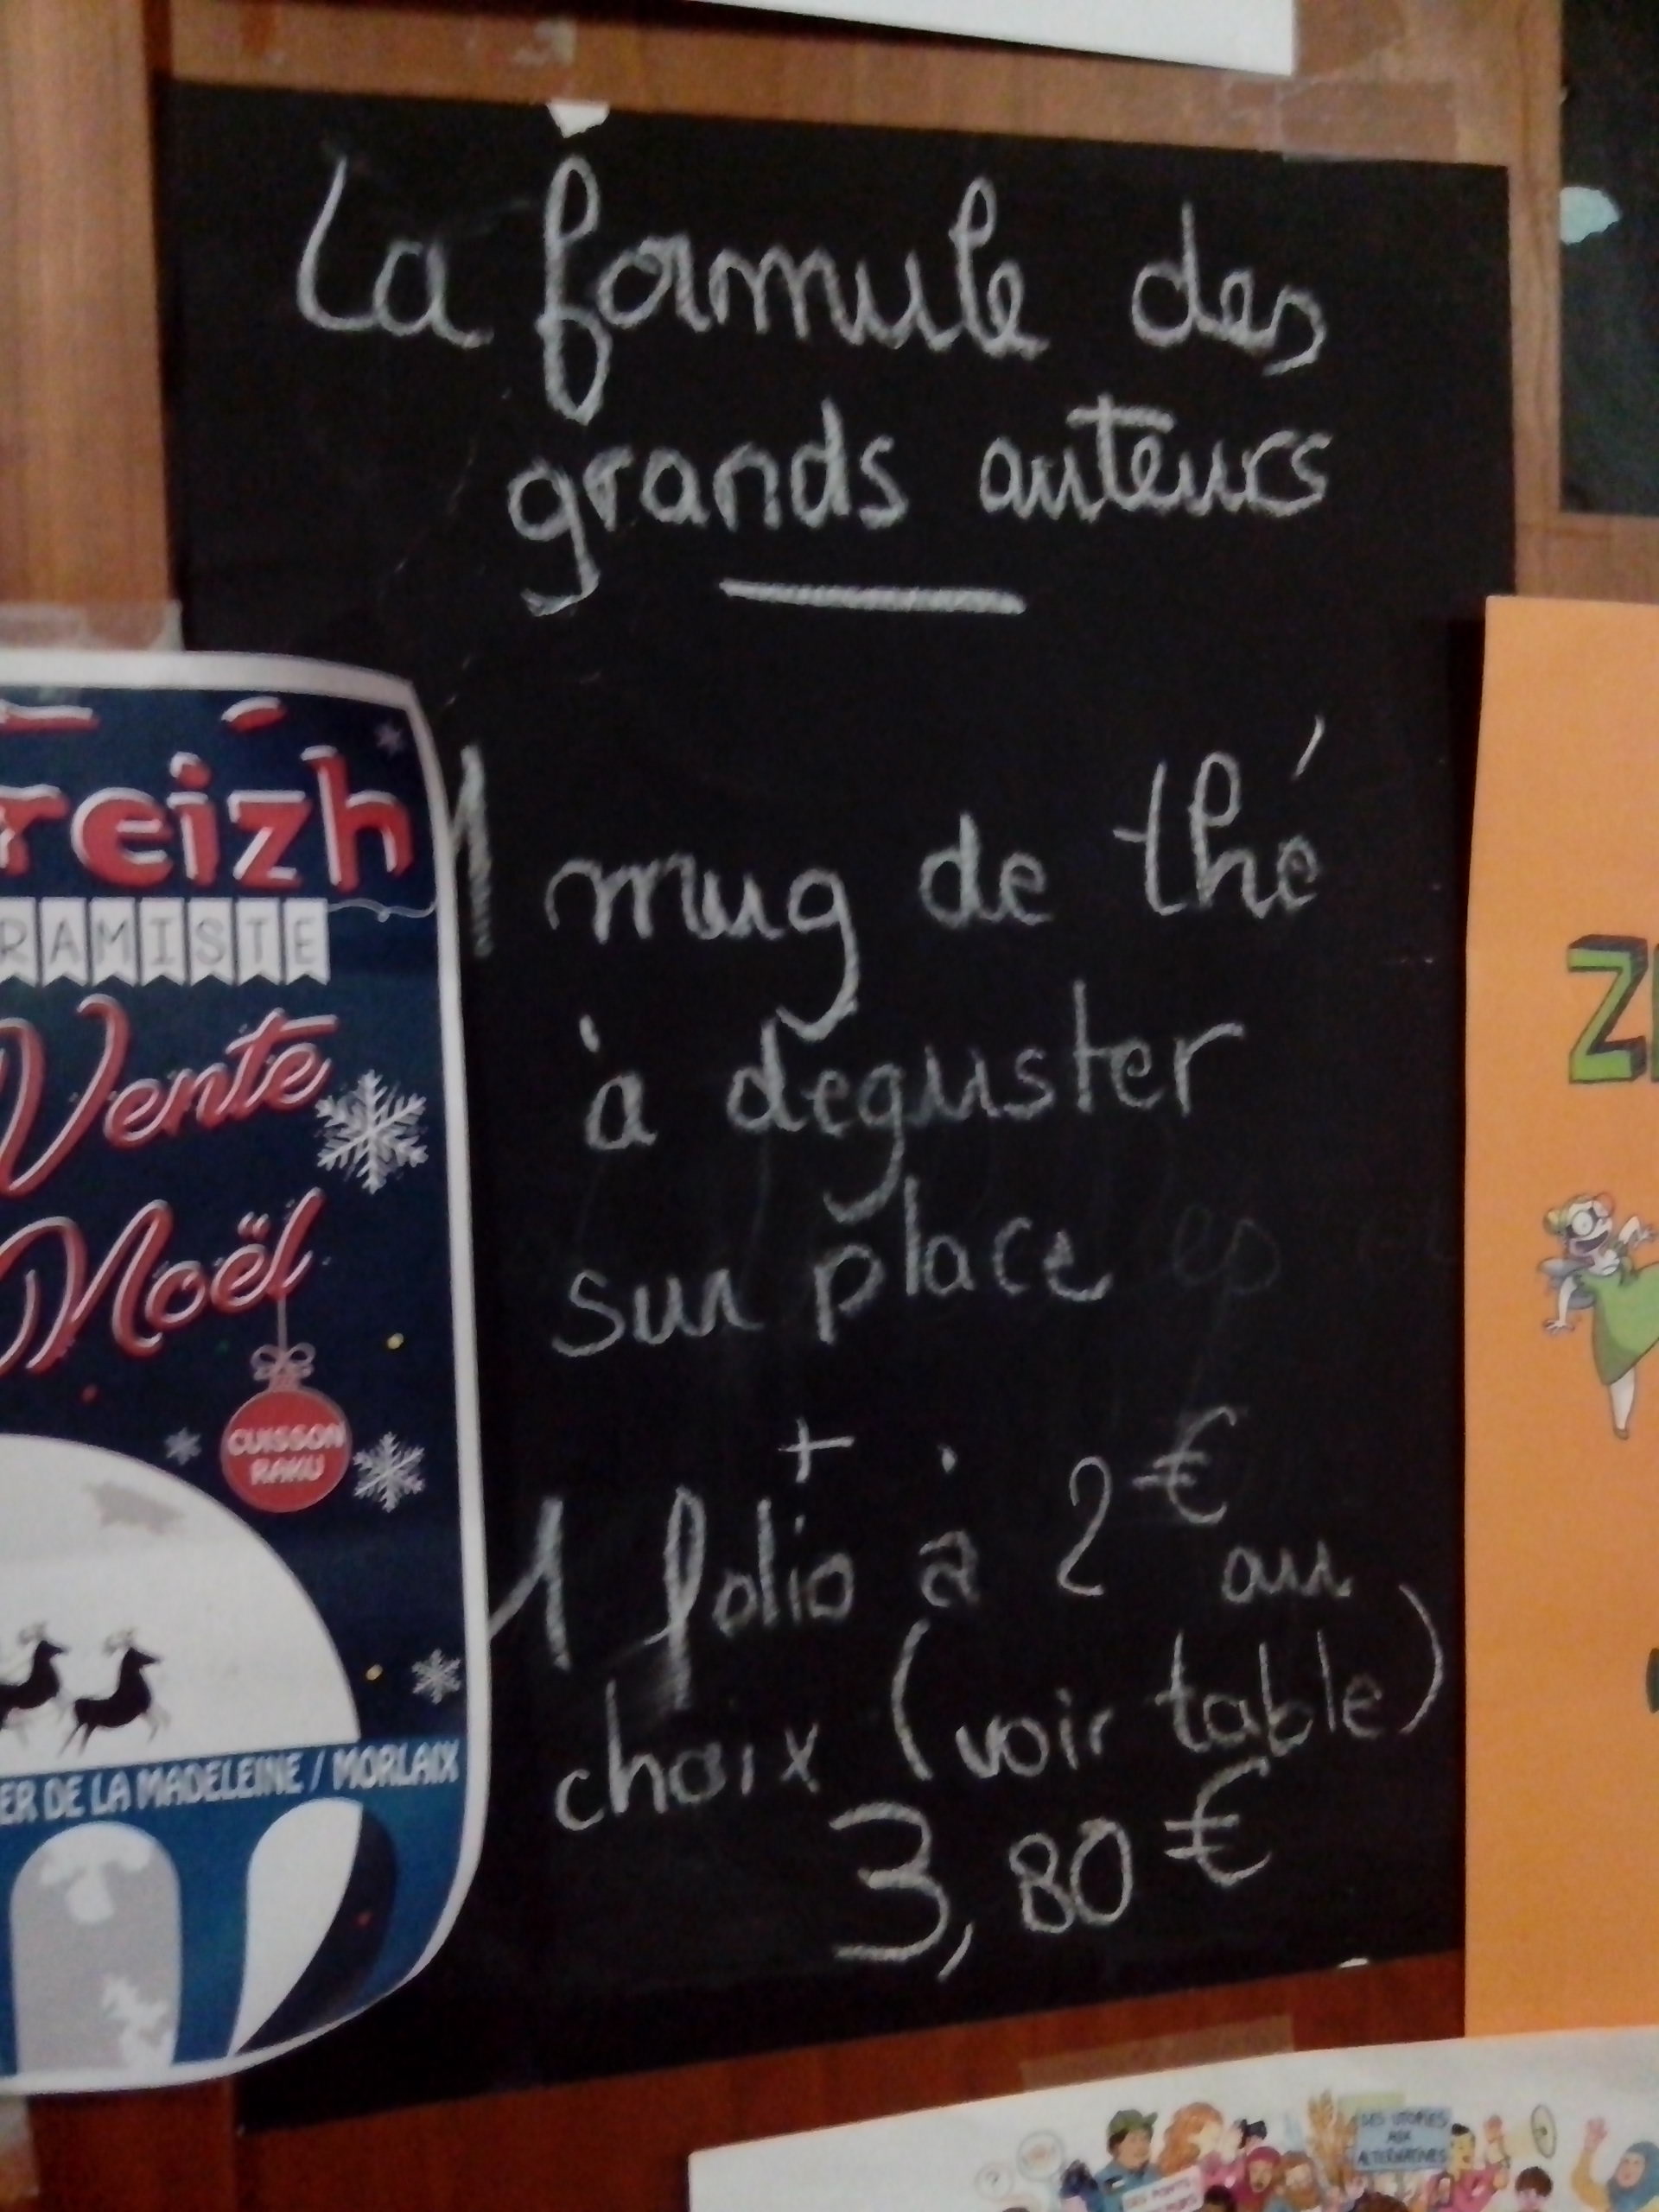 La formule des
grands auteurs
1 mug de thé
à deguster
sur place
+
1 folio à 2€ au
choix (voir table)
3,80€
reizh
RAMISTE
Vente
Noël
CUISSON
RAKU
ER DE LA MADELEINE / MORLAIX
DES UTOPIES
AUX
ALTERNATIVES